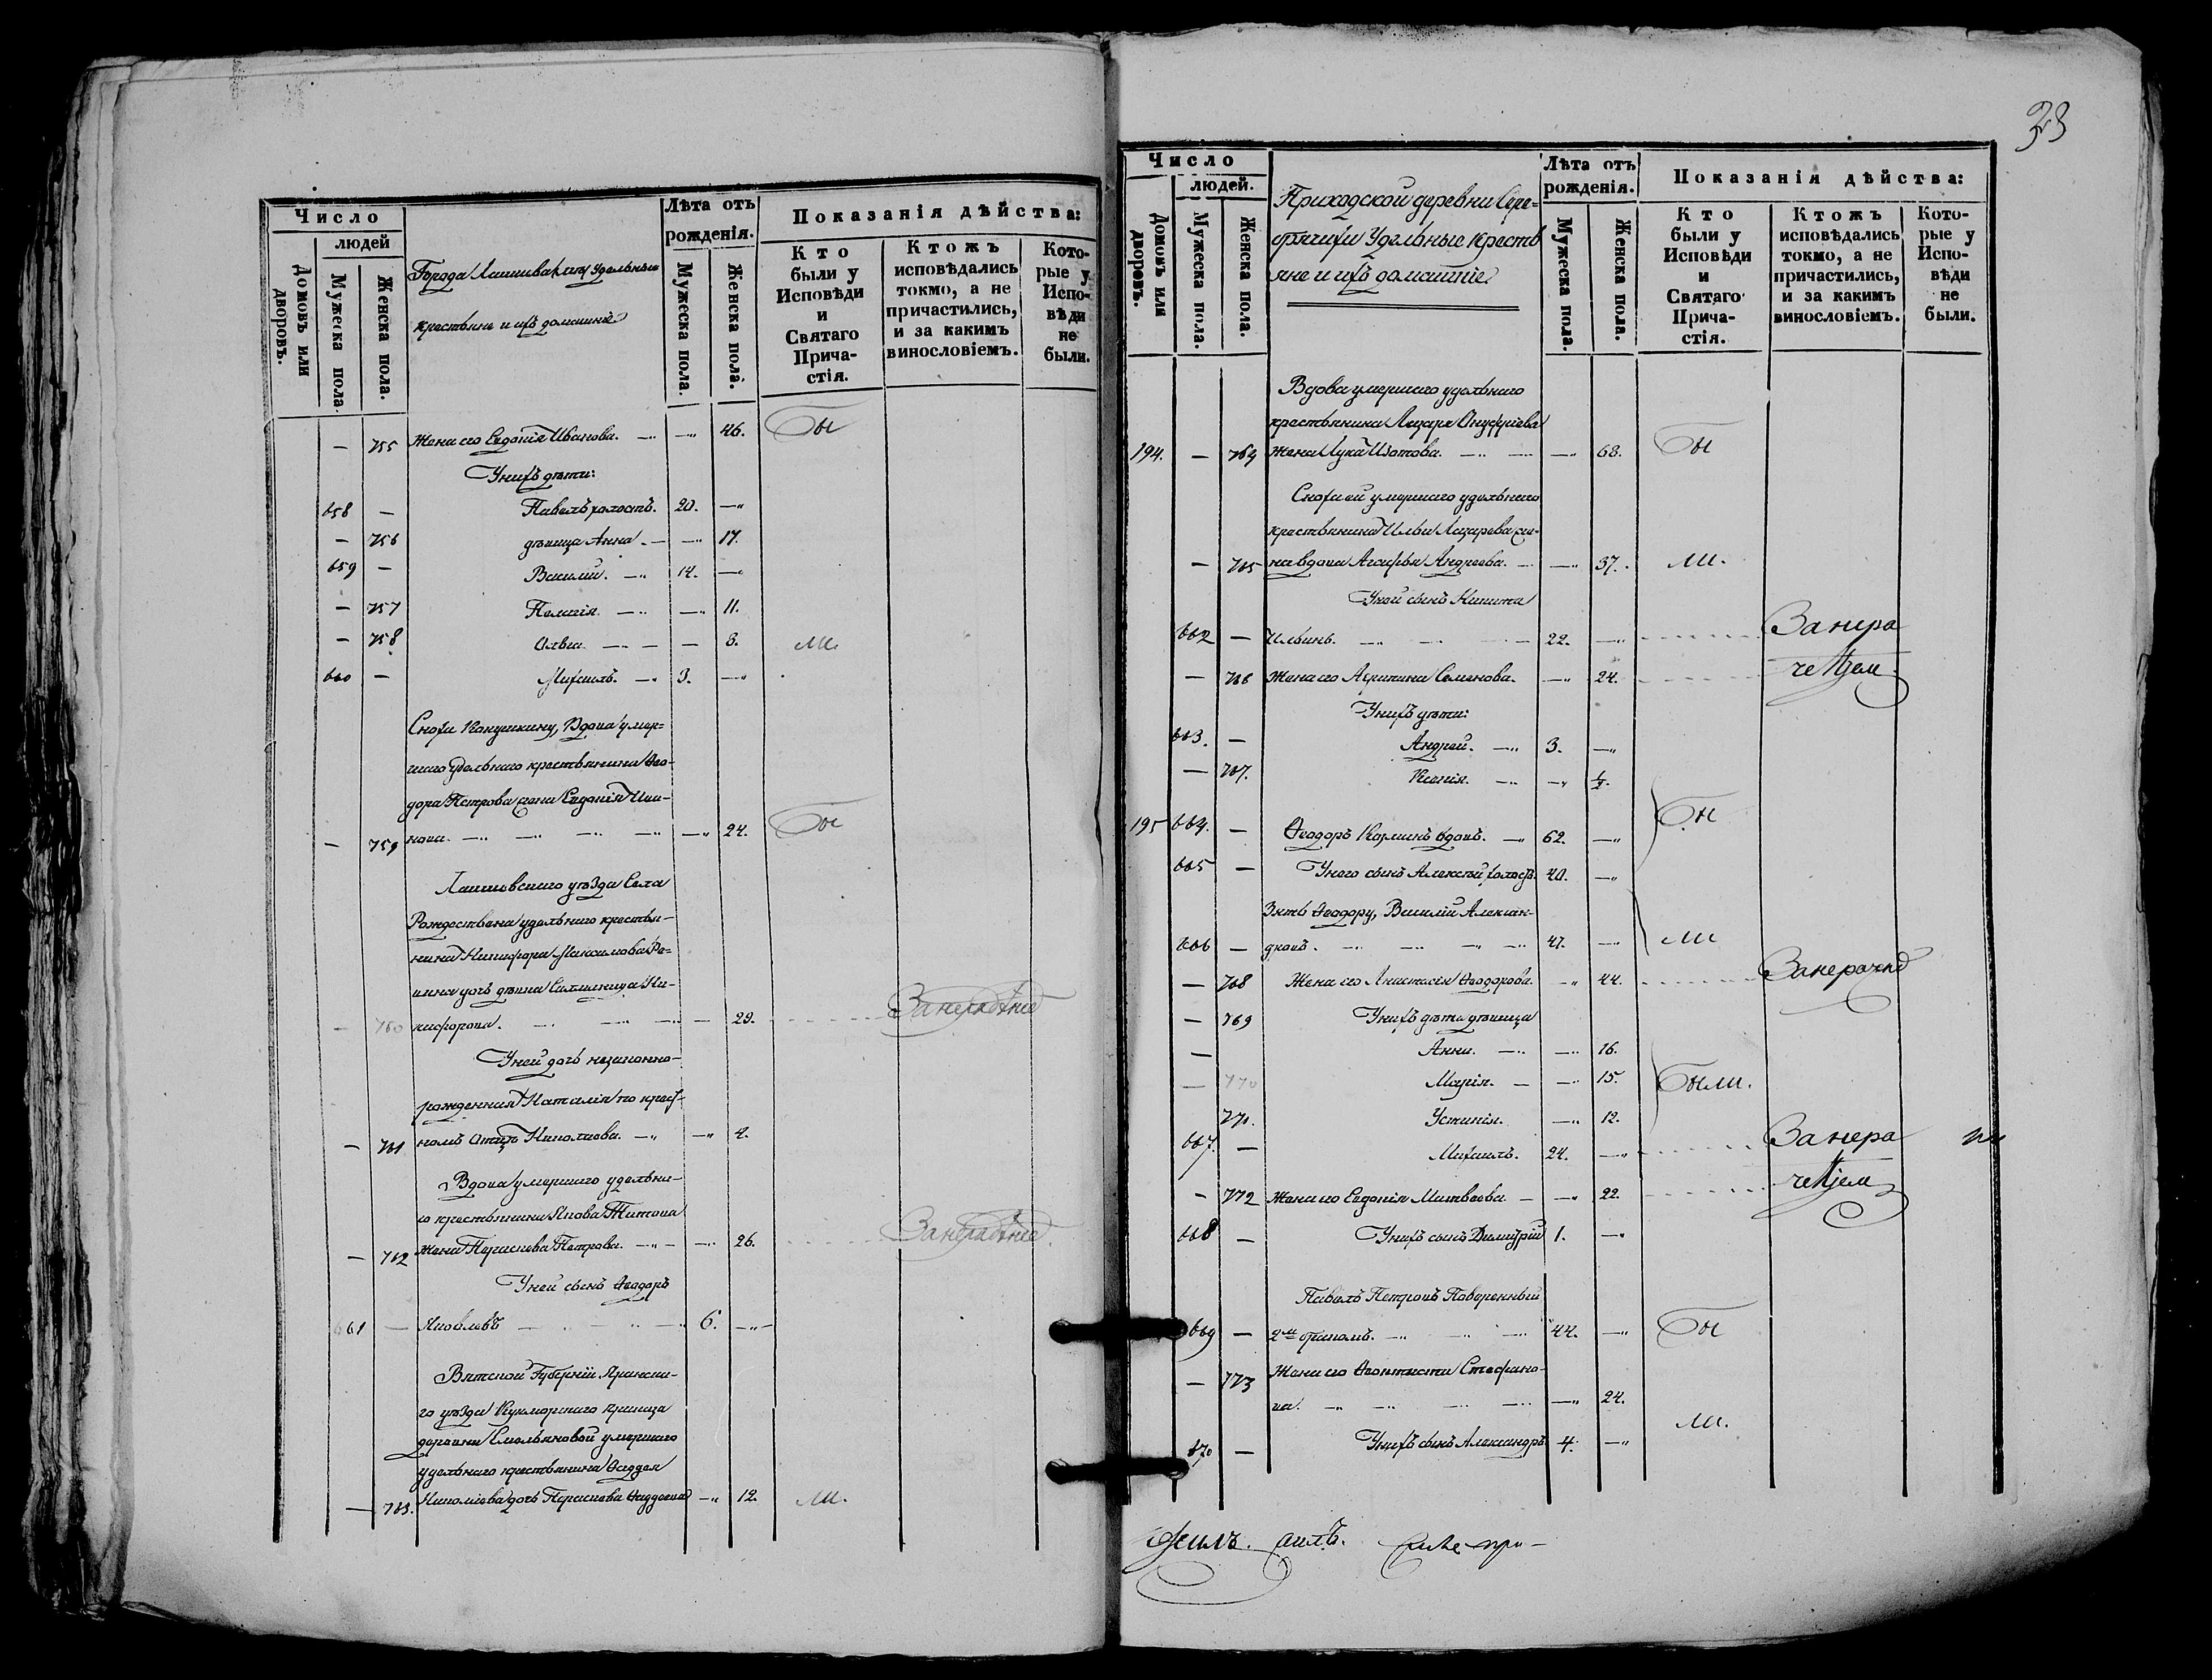 Число
людей
Домовъ или дворовъ.
Мужеска пола.
Женска пола.
Города Лаишева удѣльные
крестьяне и ихъ домашніе
Лѣта отъ рожденія.
Мужеска пола.
Женска пола.
Показанія дѣйства:
Кто были у Исповѣди и Святаго Прича-стія.
Ктожъ исповѣдались токмо, а не причастились, и за какимъ винословіемъ.
Кото-рые у Испо-вѣди не были.
— 755 Жена его Евдокія Иванова. — 46. Бы
У нихъ дѣти:
658 — Павелъ холостъ. 20. —
— 756 дѣвица Анна — — 17.
659 — Василій. — 14. —
— 757 Пелагія — — 11.
— 758 Ольга — — 8. ли
660 — Михаилъ. — 3. —
Вдова умер-
шаго удѣльнаго крестьянина Ѳео-
дора Петрова жена Евдокія Ива-
— 759 нова. — 24. Бы
Лаишевскаго уѣзда Села
Рождествена удѣльнаго крестья-
нина Никифора Максимова
дочь дѣвка Ни-
— 760 кифорова. — 29. За нерадѣніе
У ней дочь незаконно-
рожденная Наталія по крест-
— 761 номъ отцѣ Николаева. — 4.
Вдова умершаго удѣльна-
го крестьянина Якова Титова
— 762 жена Параскева Петрова. — 26. За нерадѣніе
У ней сынъ Ѳеодоръ
661 — Яковлевъ — 6. —
Вятской Губерніи Яранска-
го уѣзда Кукморскаго приказа
деревни Емельяновой умершаго
удѣльнаго крестьянина Ѳаддея
— 763. Николаева дочь Параскева Ѳаддеева — 12. ли.
33
Число
людей.
Домовъ или дворовъ.
Мужеска пола.
Женска пола.
Приходской деревни Сере-
удѣльные кресть
яне и ихъ домашніе
Лѣта отъ рожденія.
Мужеска пола.
Женска пола.
Показанія дѣйства:
Кто были у Исповѣди и Святаго Прича-стія.
Ктожъ исповѣдались токмо, а не причастились, и за какимъ винословіемъ.
Кото-рые у Испо-вѣди не были.
Вдова умершаго удѣльнаго
крестьянина Лазаря Онуфріева
194. — 764 жена Изотова. — 68. Бы
Сноха ей умершаго удѣльнаго
крестьянина Ильи Лазарева же-
— 765 на вдова Агафья Андреева. — 37. ли.
У ней сынъ Никита
662 — Ильинъ. — 22. — За нера
— 766 Жена его Агрипина Семенова. — 24.
У нихъ дѣти:
663. — Андрей. — 3. —
— 767. Ксенія. — ½.
195 664. — Ѳеодоръ Карминъ вдовъ. — 62. — Бы
665 — У него сынъ Алексѣй холостъ. 40. —
Зять Ѳеодору, Василій Алексан-
666 — дровъ. — 47. — ли
— 768 Жена его Анастасія Ѳеодорова. — 44.
— 769 У нихъ дѣти дѣвица
— Анна. — 16.
— 770 Марія. — 15. Были.
771. Устинія. — 12.
667. — Михаилъ. 24. — За нера
— 772 Жена его Евдокія Матвѣева — 22.
668 — У нихъ сынъ Димитрій 1. —
Павелъ Петровъ Поверенный
669 — 2мъ бракомъ. — 44. — Бы
— 773 Жена его Ѳеоктиста Стефано-
ва. — 24.
ли.
670 — У нихъ сынъ Александръ 4. —